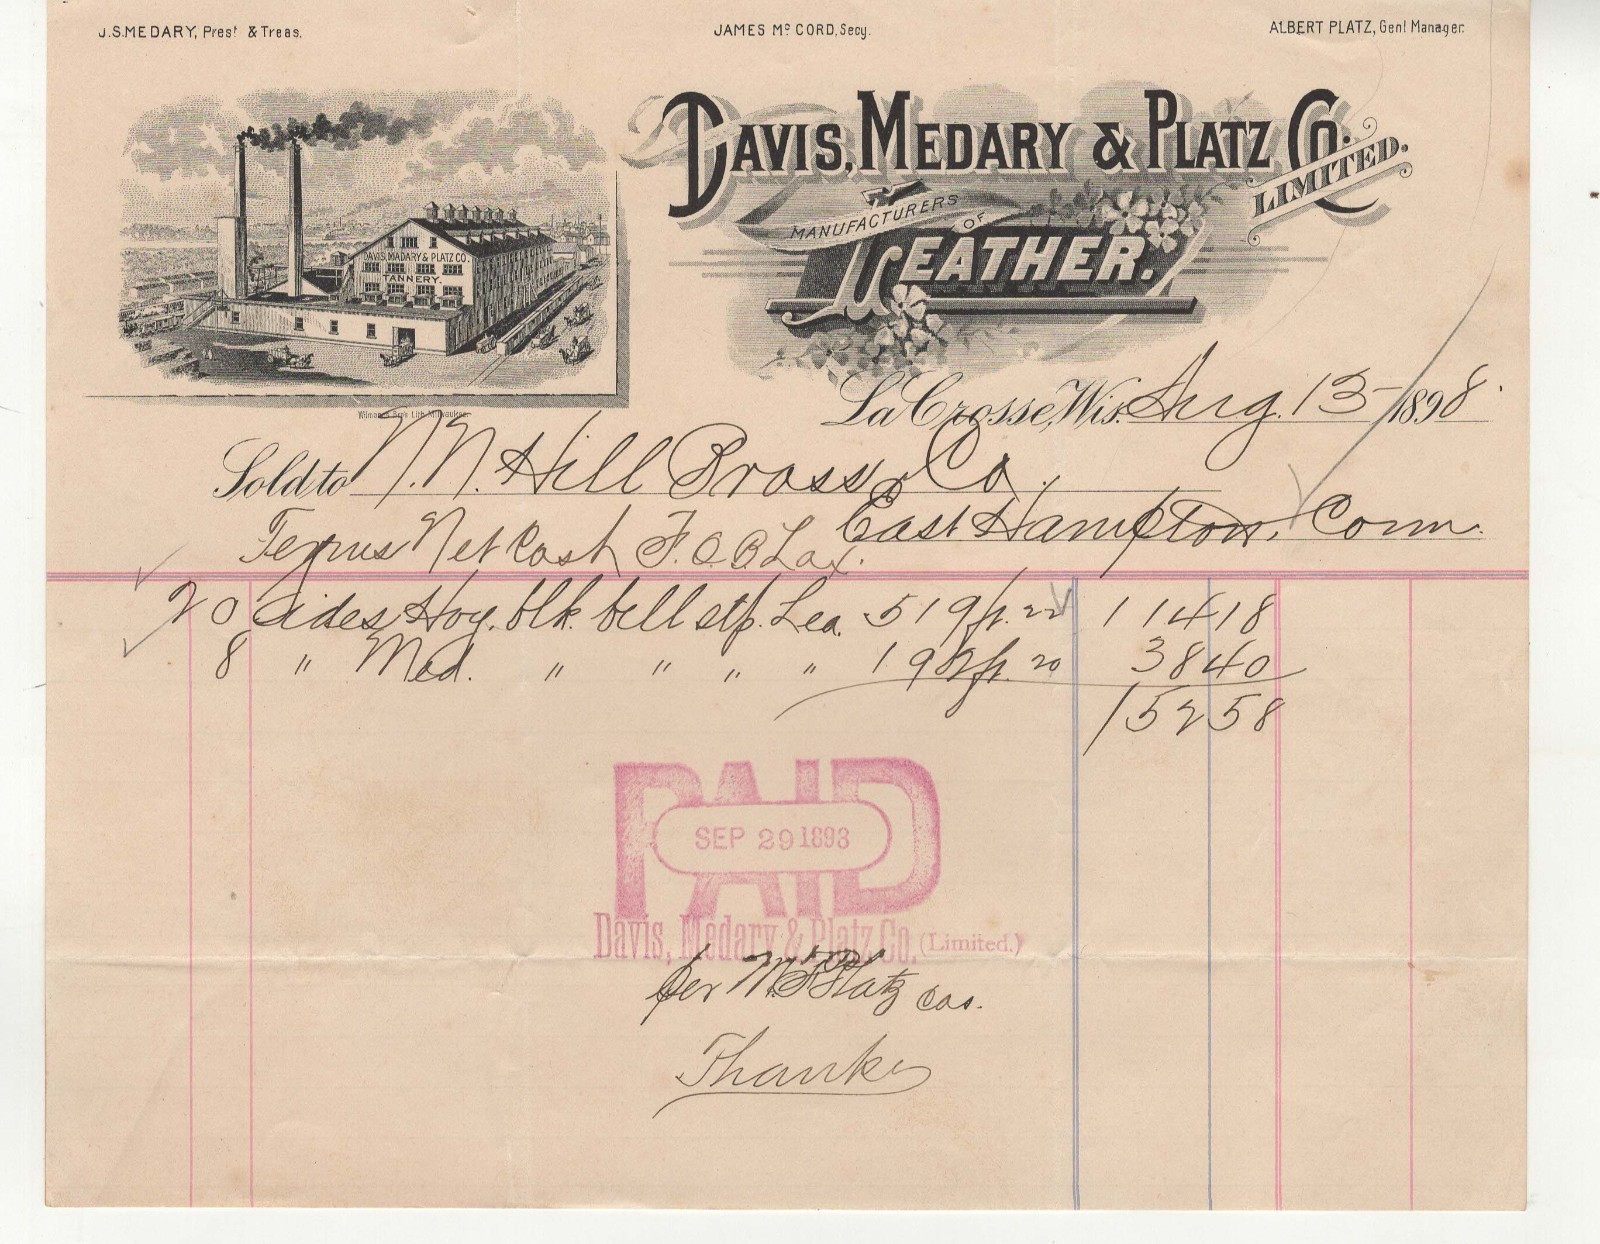 J.S. MEDARY, Prest & Treas.
JAMES McCORD, Secy.
ALBERT PLATZ, Genl Manager.
DAVIS, MEDARY & PLATZ CO. LIMITED.
MANUFACTURERS OF
LEATHER.
DAVIS, MADARY & PLATZ CO.
TANNERY.
Wilmanns Bros Lith. Milwaukee.
La Crosse, Wis. Aug. 13 1898.
Sold to N.N. Hill Brass Co.
East Hampton, Conn.
Terms Net Cash F.O.B. Lax.
20 Sides Hvy. blk. bell stp. Lea. 519 ft. 22 114 18
8 " Med. " " " " 192 ft. 20 38 40
152 58
PAID
SEP 29 1893
Davis, Medary & Platz Co. (Limited.)
per Platz Cas.
Thanks